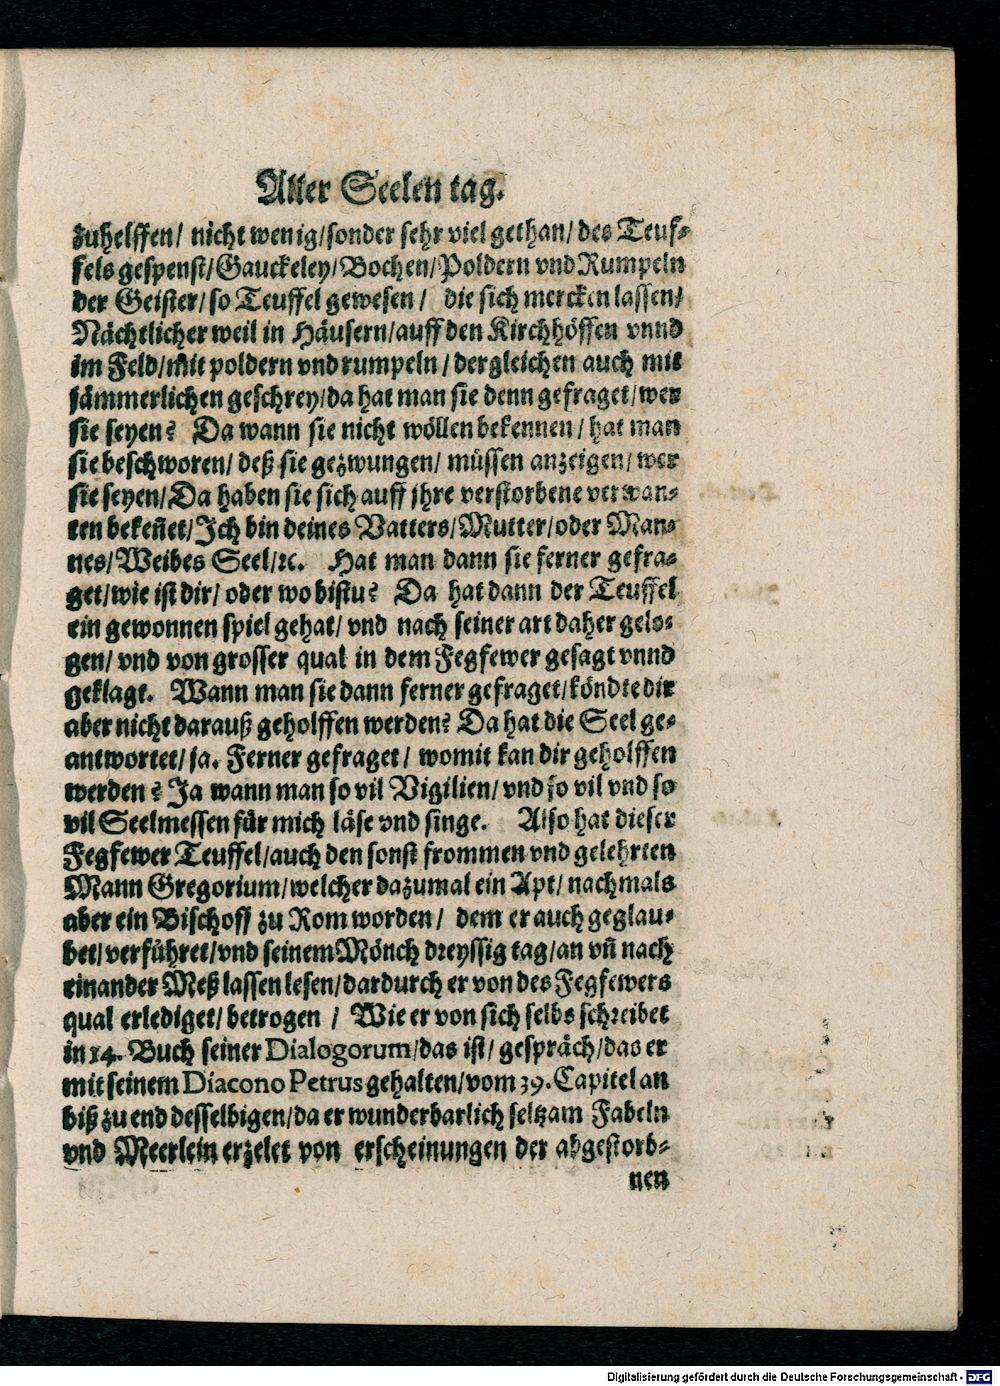 Aller Seelen tag.
zuhelffen/ nicht wenig/sonder sehr viel gethan/ des Teuf-
fels gespenst/Gauckeley/Bochen/Poldern vnd Rumpeln
der Geister/so Teuffel gewesen/ die sich mercken lassen/
Nächtlicher weil in Häusern/auff den Kirchhöffen vnnd
im Feld/mit poldern vnd rumpeln/dergleichen auch mit
jämmerlichen geschrey/da hat man sie denn gefraget/wer
sie seyen? Da wann sie nicht wöllen bekennen/hat man
sie beschworen/ deß sie gezwungen/ müssen anzeigen/wer
sie seyen/Da haben sie sich auff jhre verstorbene verwan-
ten bekeñet/Ich bin deines Vatters/Mutter/oder Man-
nes/Weibes Seel/ꝛc. Hat man dann sie ferner gefra-
get/wie ist dir/ oder wo bistu? Da hat dann der Teuffel
ein gewonnen spiel gehat/ vnd nach seiner art daher gelo-
gen/ vnd von grosser qual in dem Fegfewer gesagt vnnd
geklagt. Wann man sie dann ferner gefraget/köndte dir
aber nicht darauß geholffen werden? Da hat die Seel ge-
antwortet/ ja. Ferner gefraget/ womit kan dir geholffen
werden? Ja wann man so vil Vigilien/ vnd so vil vnd so
vil Seelmessen für mich läse vnd singe. Also hat dieser
Fegfewer Teuffel/auch den sonst frommen vnd gelehrten
Mann Gregorium/welcher dazumal ein Apt/ nachmals
aber ein Bischoff zu Rom worden/ dem er auch geglau-
bet/verführet/vnd seinem Mönch dreyssig tag/an vñ nach
einander Meß lassen lesen/dardurch er von des Fegfewers
qual erlediget/betrogen/ Wie er von sich selbs schreibet
in 14. Buch seiner Dialogorum/das ist/ gespräch/das er
mit seinem Diacono Petrus gehalten/vom 39. Capitel an
biß zu end desselbigen/da er wunderbarlich seltzam Fabeln
vnd Meerlein erzelet von erscheinungen der abgestorb-
nen
Digitalisierung gefördert durch die Deutsche Forschungsgemeinschaft - DFG